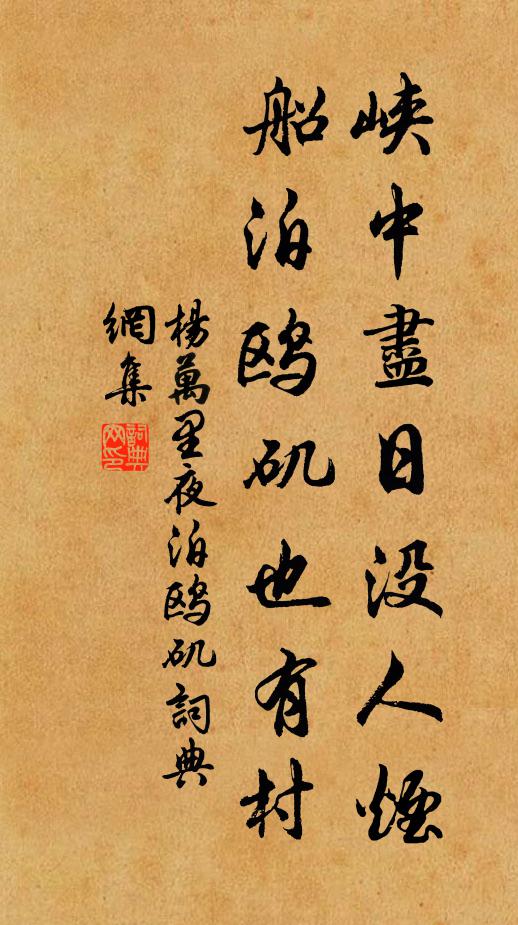 峡中盡日没人煙
船泊鸥矶也有村
楊萬里夜泊鸥矶詞典
網集
詞典
网印